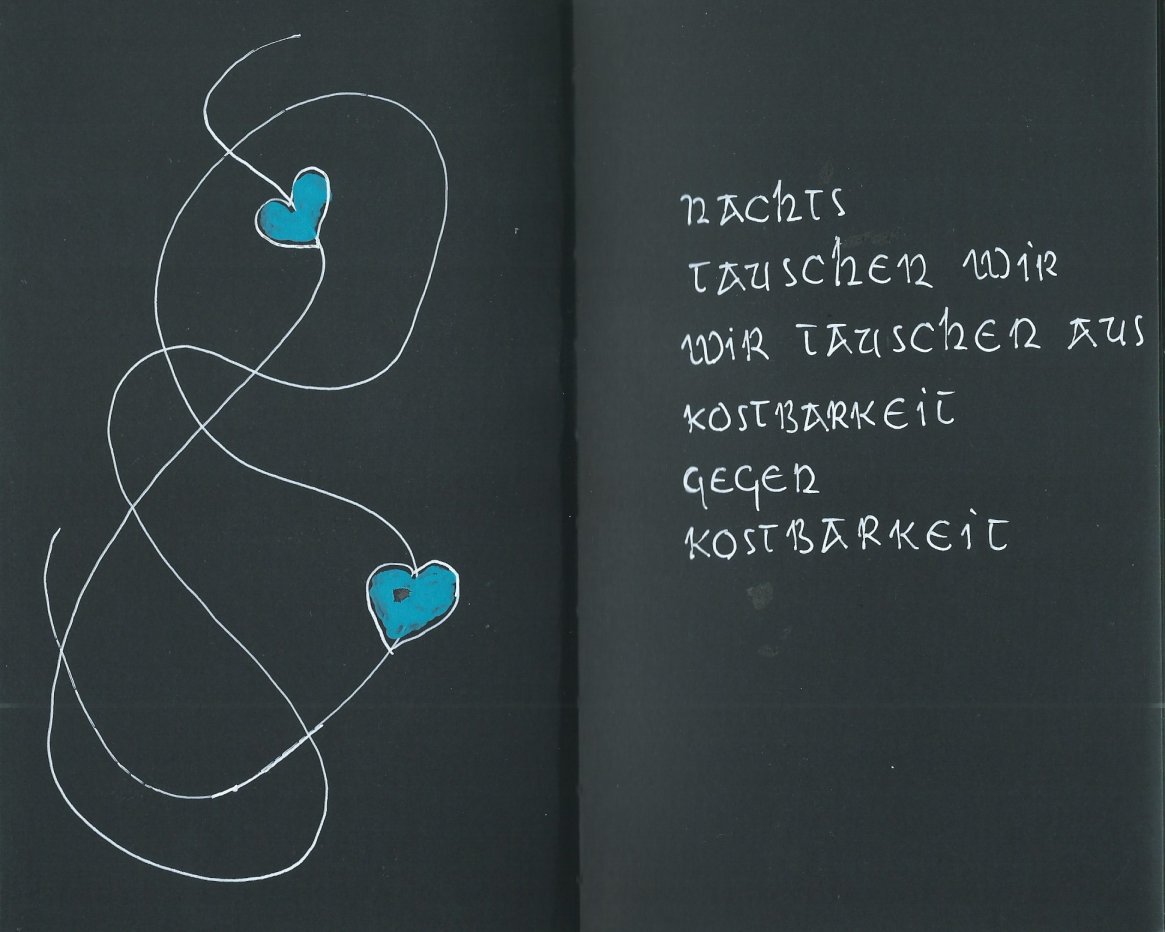 NACHTS
TAUSCHEN WIR
WIR TAUSCHEN AUS
KOSTBARKEIT
GEGEN
KOSTBARKEIT